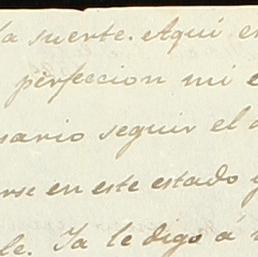 la suerte. Aquí e
perfeccion mi e
sario seguir el
rse en este estado y
le. Ya le digo á